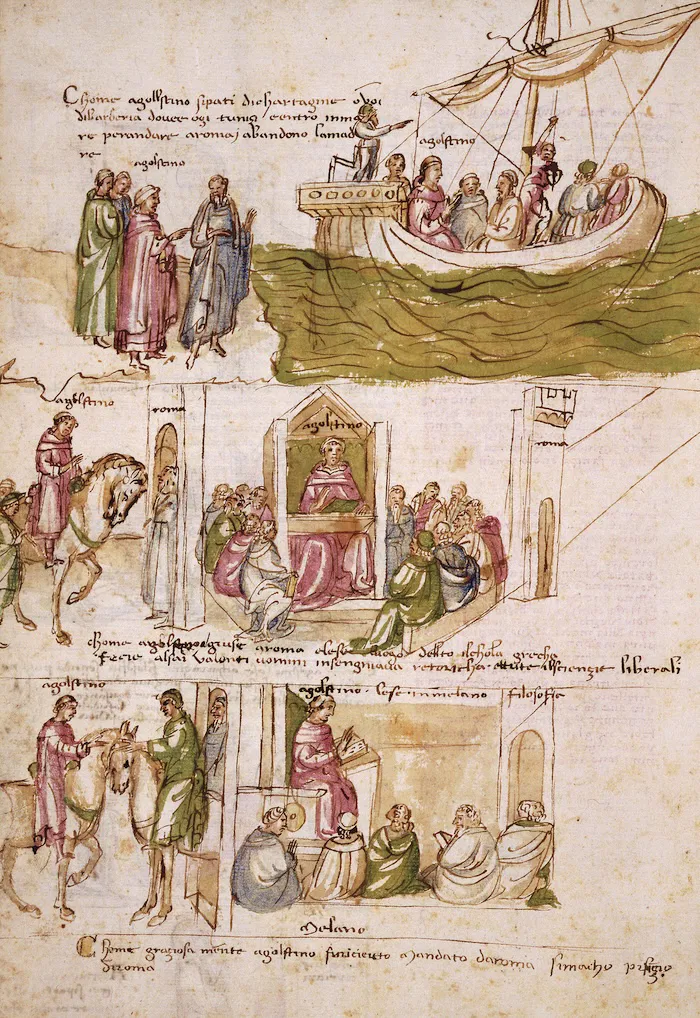 Chome agostino siparti dichartagine ovoi
dibarberia dove ogi tunizi e entro inma
re perandare aroma e abandono lamad
re
agostino
agostino
agostino
roma
agostino
roma
Chome agostino giuse aroma elese luogo detto ischola grecha
fecie assai valenti uomini insengniava retoricha e tute isscienzie liberali
agostino
agostino lese inmelano filosofia
Melano
Chome graziosa mente agostino fu ricieuto mandato daroma simacho
diroma